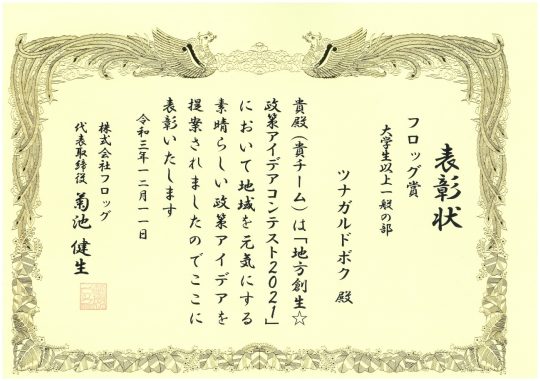 表彰状
フロッグ賞
大学生以上一般の部
ツナガルドボク 殿
貴殿(貴チーム)は「地方創生☆
政策アイデアコンテスト2021」
において地域を元気にする
素晴らしい政策アイデアを
提案されましたのでここに
表彰いたします
令和三年一二月一一日
株式会社フロッグ
代表取締役 菊池 健生